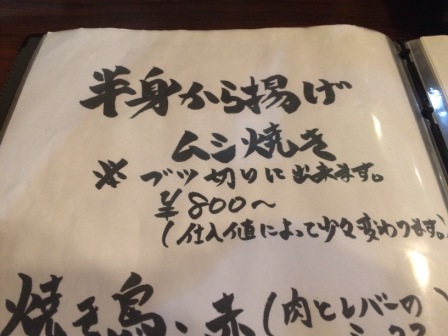 半身から揚げ
ムシ焼き
※ブツ切りに出来ます。
¥800〜
(仕入値によって少々変わります。)
焼き鳥、赤(肉とレバーの